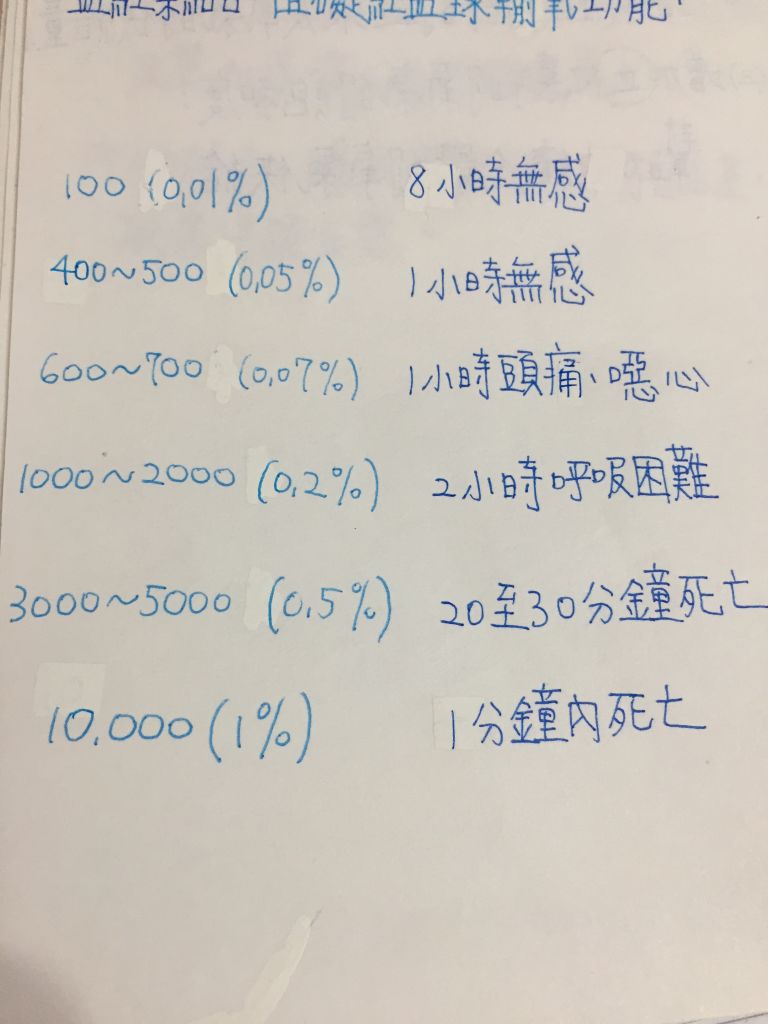 血紅素結合 阻礙紅血球輸氧功能.
100 (0,01%) 8小時無感
400~500 (0,05%) 1小時無感
600~700 (0,07%) 1小時頭痛、噁心
1000~2000 (0,2%) 2小時呼吸困難
3000~5000 (0,5%) 20至30分鐘死亡
10,000 (1%) 1分鐘內死亡